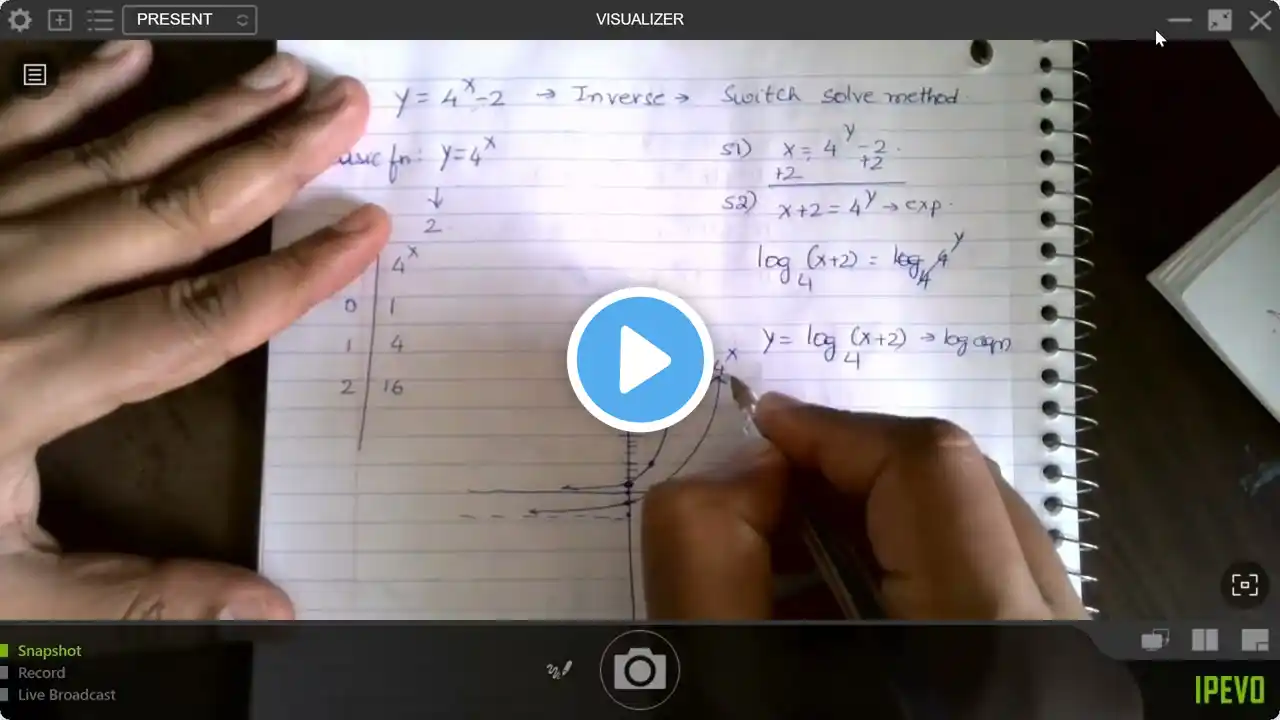 PRESENT
VISUALIZER
y = 4^x - 2 → Inverse → Switch solve method.
fn: y = 4^x
↓
2
4^x
0 1
1 4
2 16
S1) x = 4^y - 2.
+2 +2
S2) x+2 = 4^y → exp.
log_4 (x+2) = log_4 4^y
y = log_4 (x+2) → log eqn
4^x
Snapshot
Record
Live Broadcast
IPEVO